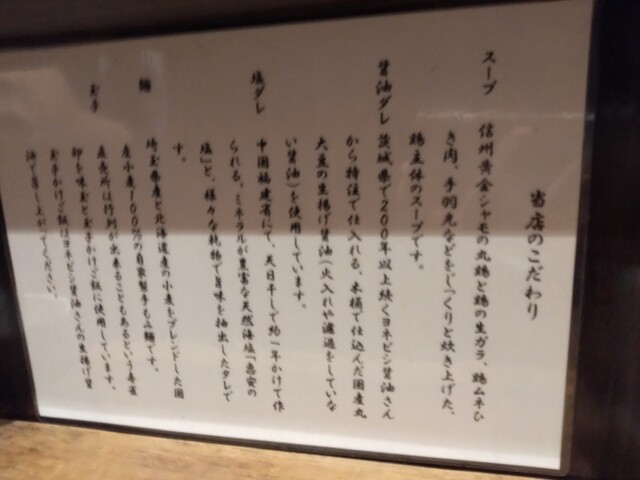 当店のこだわり
スープ 信州黄金シャモの丸鶏と鶏の生ガラ、鶏ムネひ
き肉、手羽先などをじっくりと炊き上げた、
鶏主体のスープです。
醤油ダレ 茨城県で200年以上続くヨネビシ醤油さん
から特注で仕入れる、木桶で仕込んだ国産丸
大豆の生揚げ醤油(火入れや濾過をしていな
い醤油)を使用しています。
塩ダレ 中国福建省にて、天日干しで約一年かけて作
られる、ミネラルが豊富な天然海塩「恵安の
塩」と、様々な乾物で旨味を抽出したタレで
す。
麺 埼玉県産と北海道産の小麦をブレンドした国
産小麦100%の自家製手もみ麺です。
産売所は行列が出来ることもあるという
卵を味玉と玉子かけご飯に使用しています。
玉子かけご飯はヨネビシ醤油さんの生揚げ醤
油で召し上がってください。